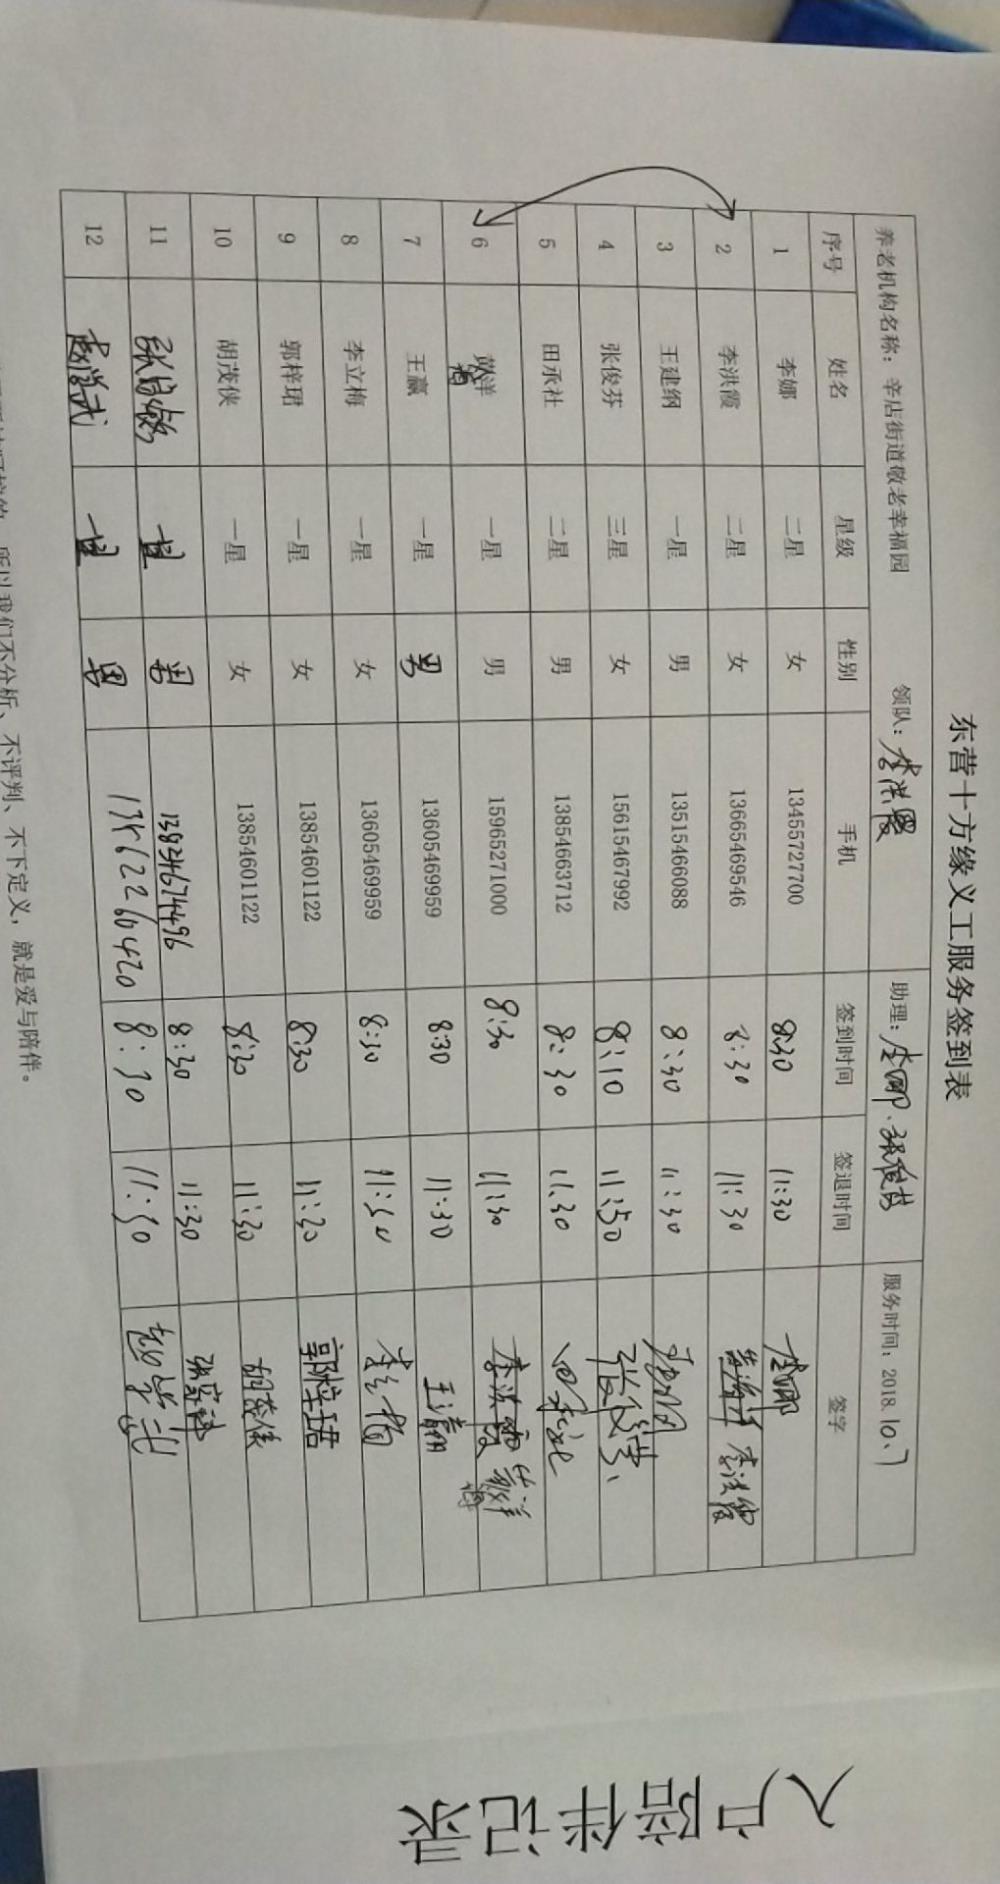 东营十方缘义工服务签到表
养老机构名称：辛店街道敬老幸福园 领队：李洪霞 助理：李娜、张俊芬 服务时间：2018.10.7
序号 姓名 星级 性别 手机 签到时间 签退时间 签字
1 李娜 二星 女 13455727700 8:30 11:30 李娜
2 李洪霞 二星 女 13665469546 8:30 11:30 李洪霞
3 王建纲 一星 男 13515466088 8:30 11:30
4 张俊芬 三星 女 15615467992 8:10 11:50 张俊芬
5 田承社 二星 男 13854663712 8:30 11:30 田承社
6 洋 一星 男 15965271000 8:30 11:30 李洪霞
7 王赢 一星 男 13605469959 8:30 11:30 王赢
8 李立梅 一星 女 13605469959 8:30 11:30 李立梅
9 郭梓珺 一星 女 13854601122 8:30 11:30 郭梓珺
10 胡茂侠 一星 女 13854601122 8:30 11:30 胡茂侠
11 一星 男 13834674496 8:30 11:30
12 一星 男 8:30 11:30
所以我们不分析、不评判、不下定义，就是爱与陪伴。
入户陪伴记录